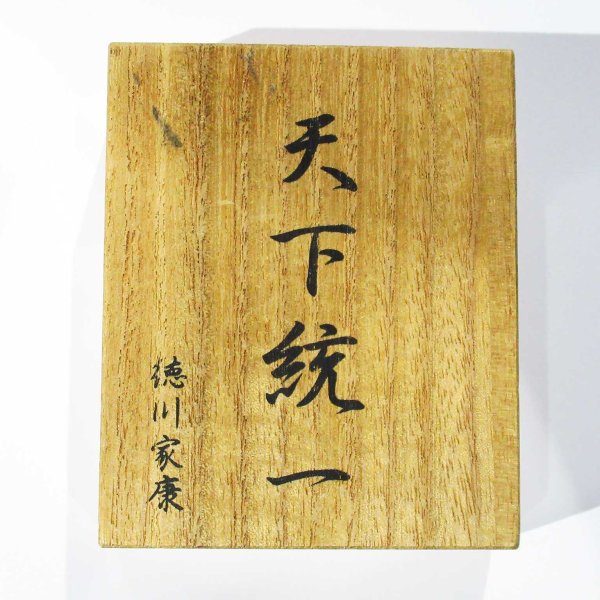 天下統一
徳川家康